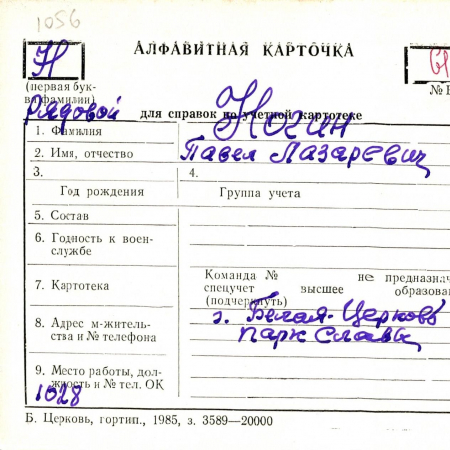 1056
АЛФАВИТНАЯ КАРТОЧКА
Н
(первая бук-
ва фамилии)
Рядовой
для справок по учетной картотеке
1. Фамилия Ногин
2. Имя, отчество Павел Лазаревич
3. 4.
Год рождения Группа учета
5. Состав
6. Годность к воен-
службе
7. Картотека
Команда № не предназнач
спецучет высшее образова
(подчеркнуть)
8. Адрес м-житель-
ства и № телефона
г. Белая-Церковь
парк Славы
9. Место работы, дол-
жность и № тел. ОК
1028
Б. Церковь, гортип., 1985, з. 3589—20000